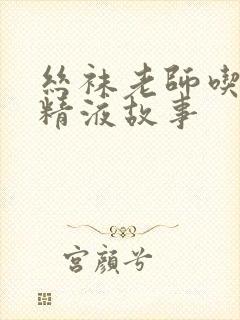 絲袜老師喫
精液故事
宮顔兮